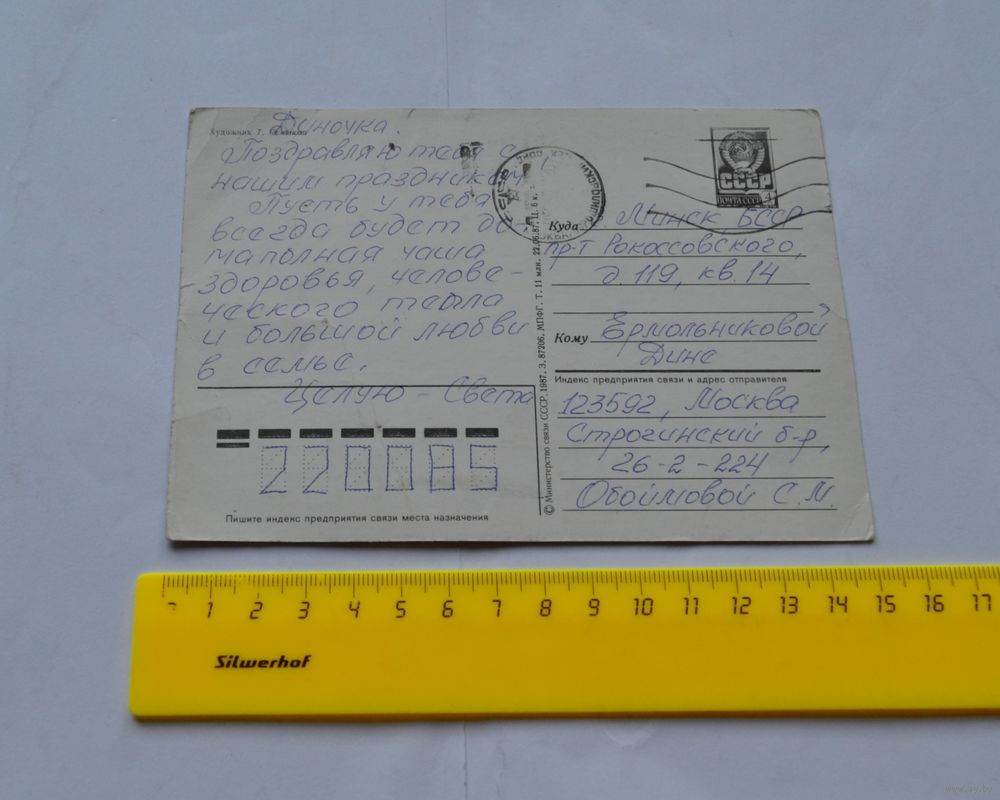 Художник Т.
Диночка.
Поздравляю тебя с
нашим праздником!
Пусть у тебя
всегда будет до-
маполная чаша
здоровья, челове-
ческого тепла
и большой любви
в семье.
Целую - Света
220085
Пишите индекс предприятия связи места назначения
© Министерство связи СССР. 1987. З. 87206. МПФГ. Т. 11 млн. 22.06.87. Ц. 6 к.
СССР
ПОЧТА СССР
Куда Минск БССР
пр-т Рокоссовского,
д. 119, кв. 14
Кому Ермольниковой
Дине
Индекс предприятия связи и адрес отправителя
123592, Москва
Строгинский б-р,
26-2-224
Обоймовой С.М.
1 2 3 4 5 6 7 8 9 10 11 12 13 14 15 16 17
Silwerhof